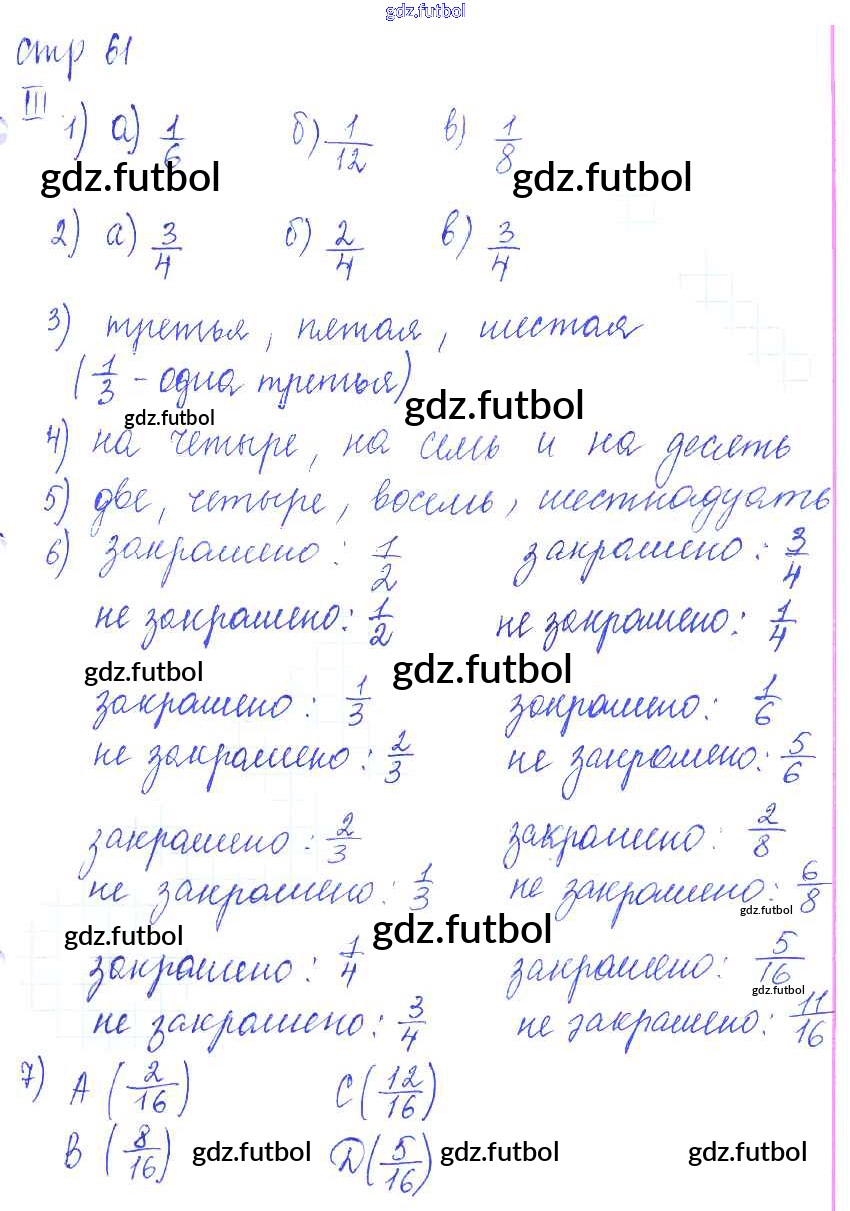 gdz.futbol
стр 61
III
1) а) 1/6 б) 1/12 в) 1/8
gdz.futbol gdz.futbol
2) а) 3/4 б) 2/4 в) 3/4
3) третья, пятая, шестая
(1/3 - одна третья)
gdz.futbol gdz.futbol
4) на четыре, на семь и на десять
5) две, четыре, восемь, шестнадцать
6) закрашено: 1/2 закрашено: 3/4
не закрашено: 1/2 не закрашено: 1/4
gdz.futbol gdz.futbol
закрашено: 1/3 закрашено: 1/6
не закрашено: 2/3 не закрашено: 5/6
закрашено: 2/3 закрашено: 2/8
не закрашено: 1/3 не закрашено: 6/8
gdz.futbol gdz.futbol gdz.futbol
закрашено: 1/4 закрашено: 5/16
gdz.futbol
не закрашено: 3/4 не закрашено: 11/16
7) A (2/16) C (12/16)
B (8/16) D (5/16)
gdz.futbol gdz.futbol gdz.futbol